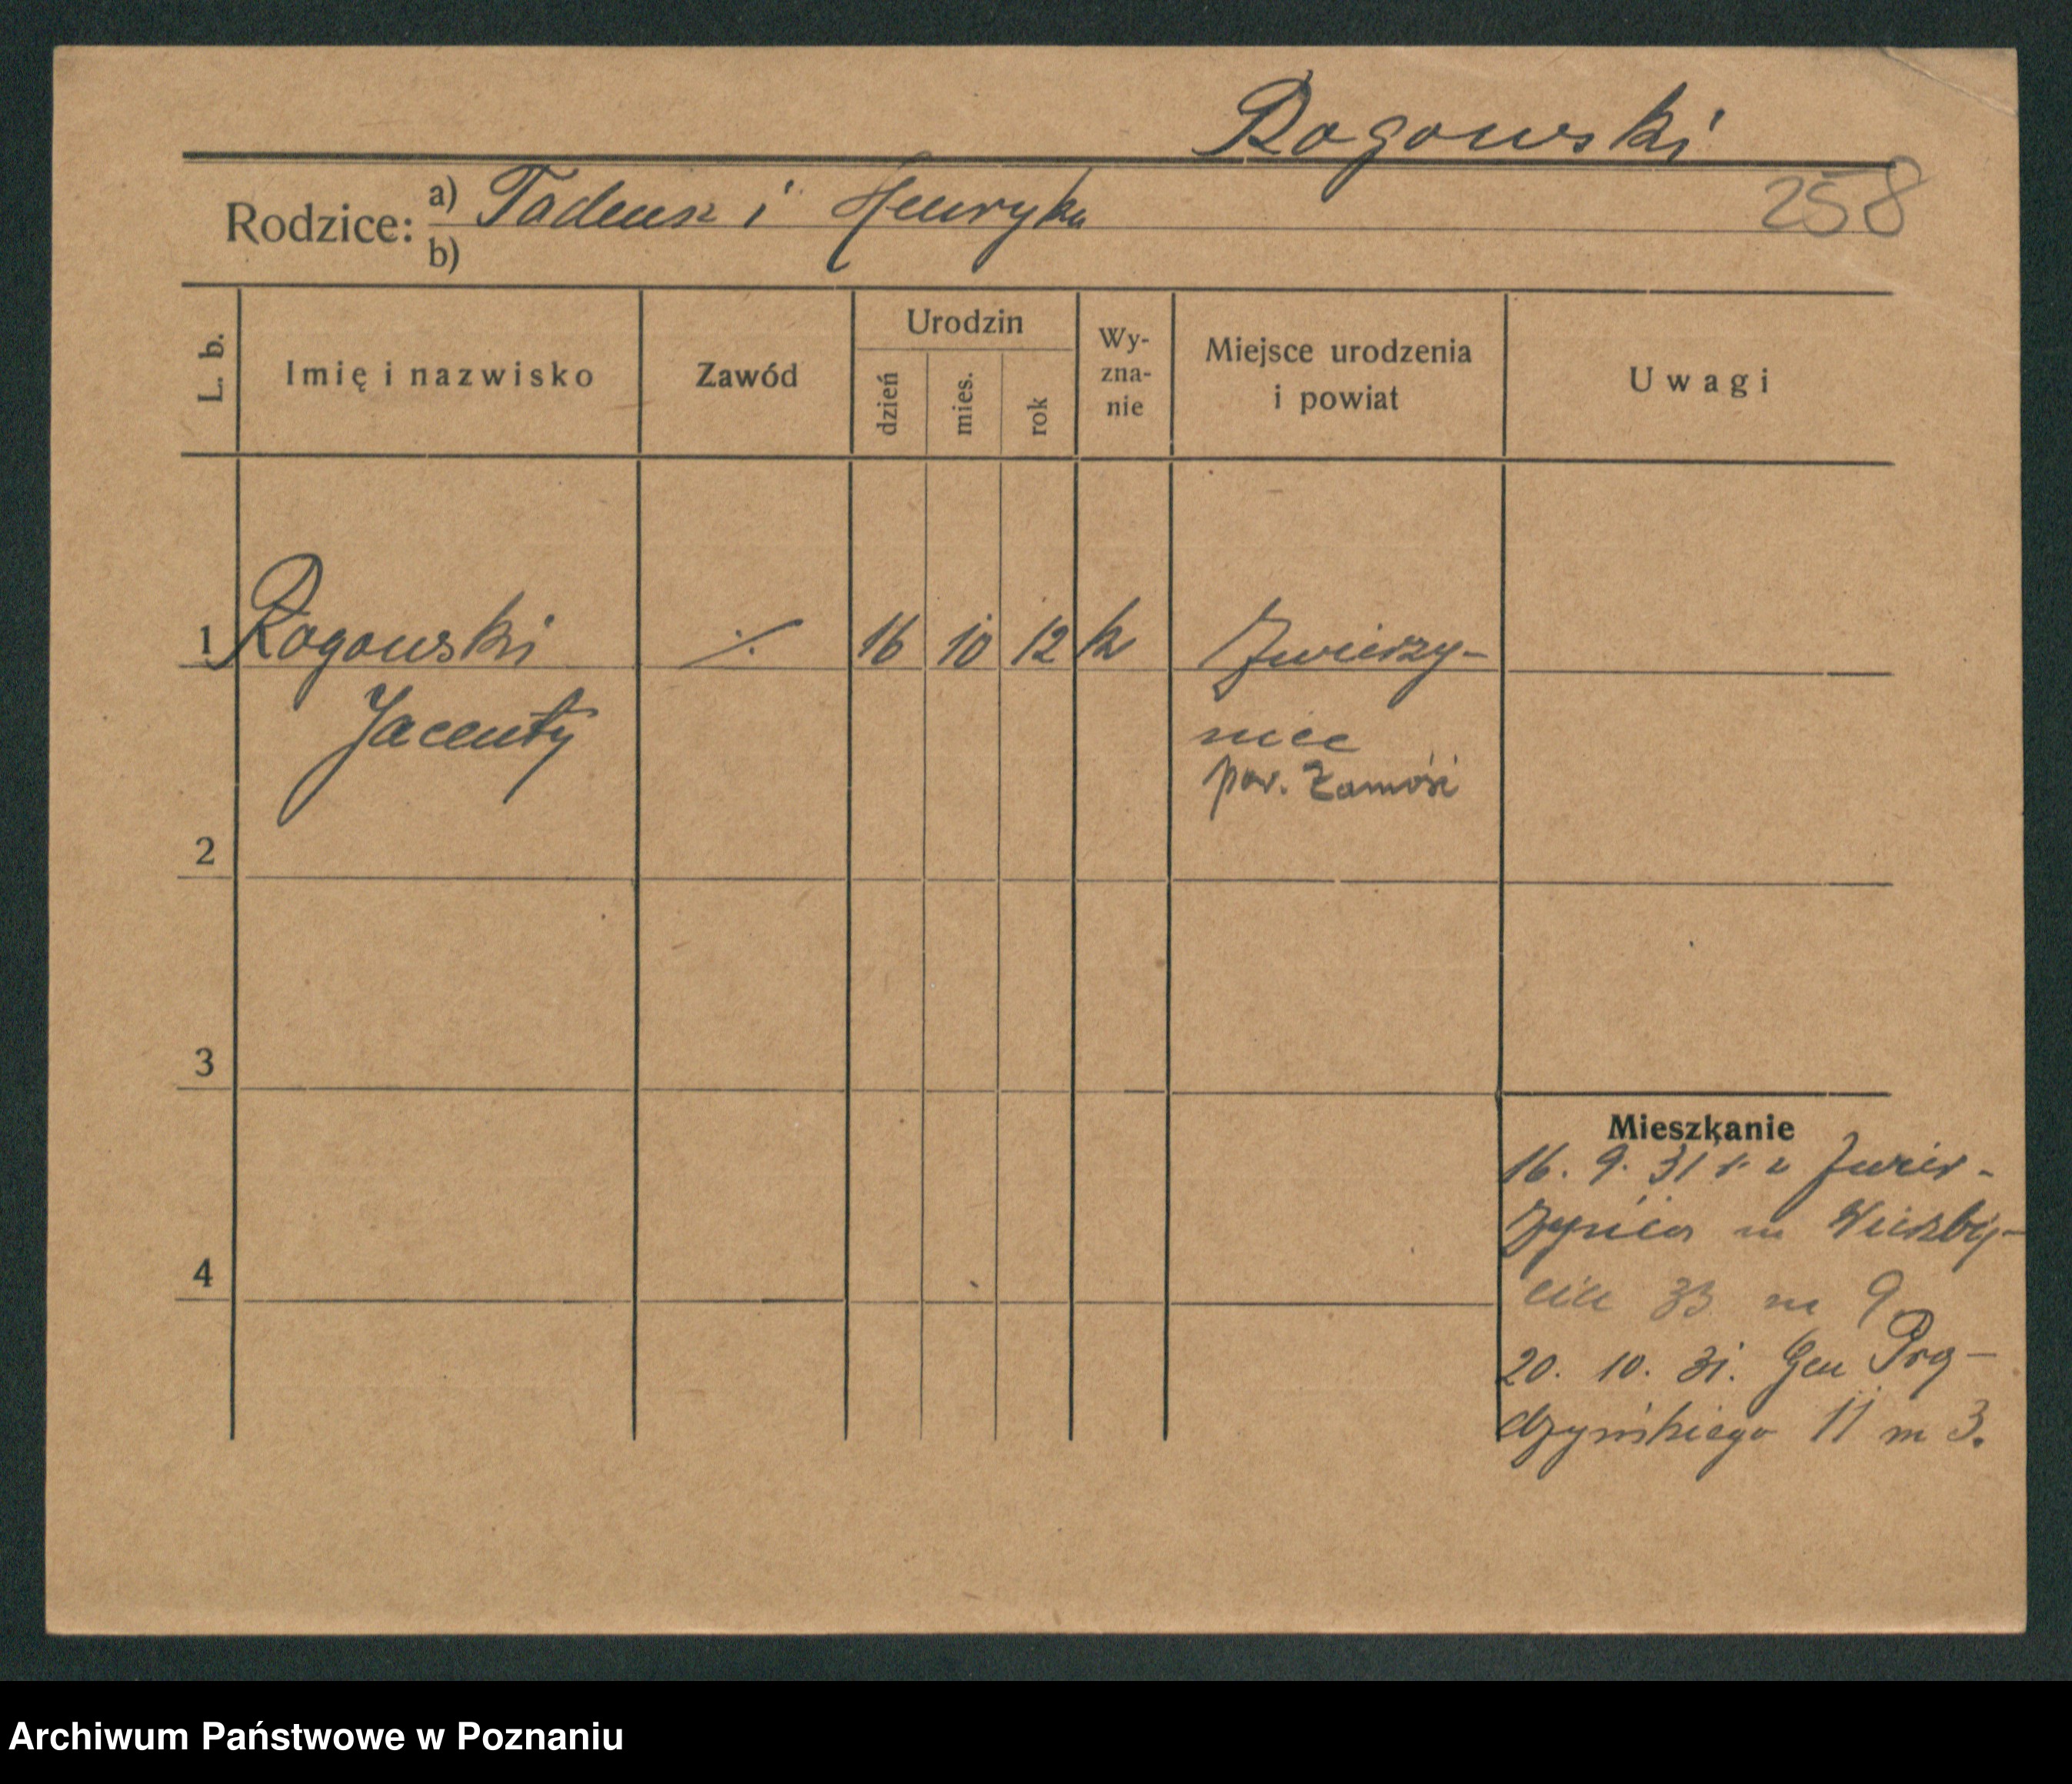 Rogowski
258
Rodzice: a) Tadeusz i Henryka
b)
L. b.
Imię i nazwisko
Zawód
Urodzin
dzień
mies.
rok
Wy-
zna-
nie
Miejsce urodzenia
i powiat
Uwagi
1 Rogowski ./. 16 10 12 k Zwierzy-
Jacenty
niec
pow. Zamość
2
3
4
Mieszkanie
16. 9. 31 Zwier-
zyniec Wierzbię-
cice 33 m 9
20. 10. 31. Gen Prą-
dzyńskiego 11 m 3.
Archiwum Państwowe w Poznaniu